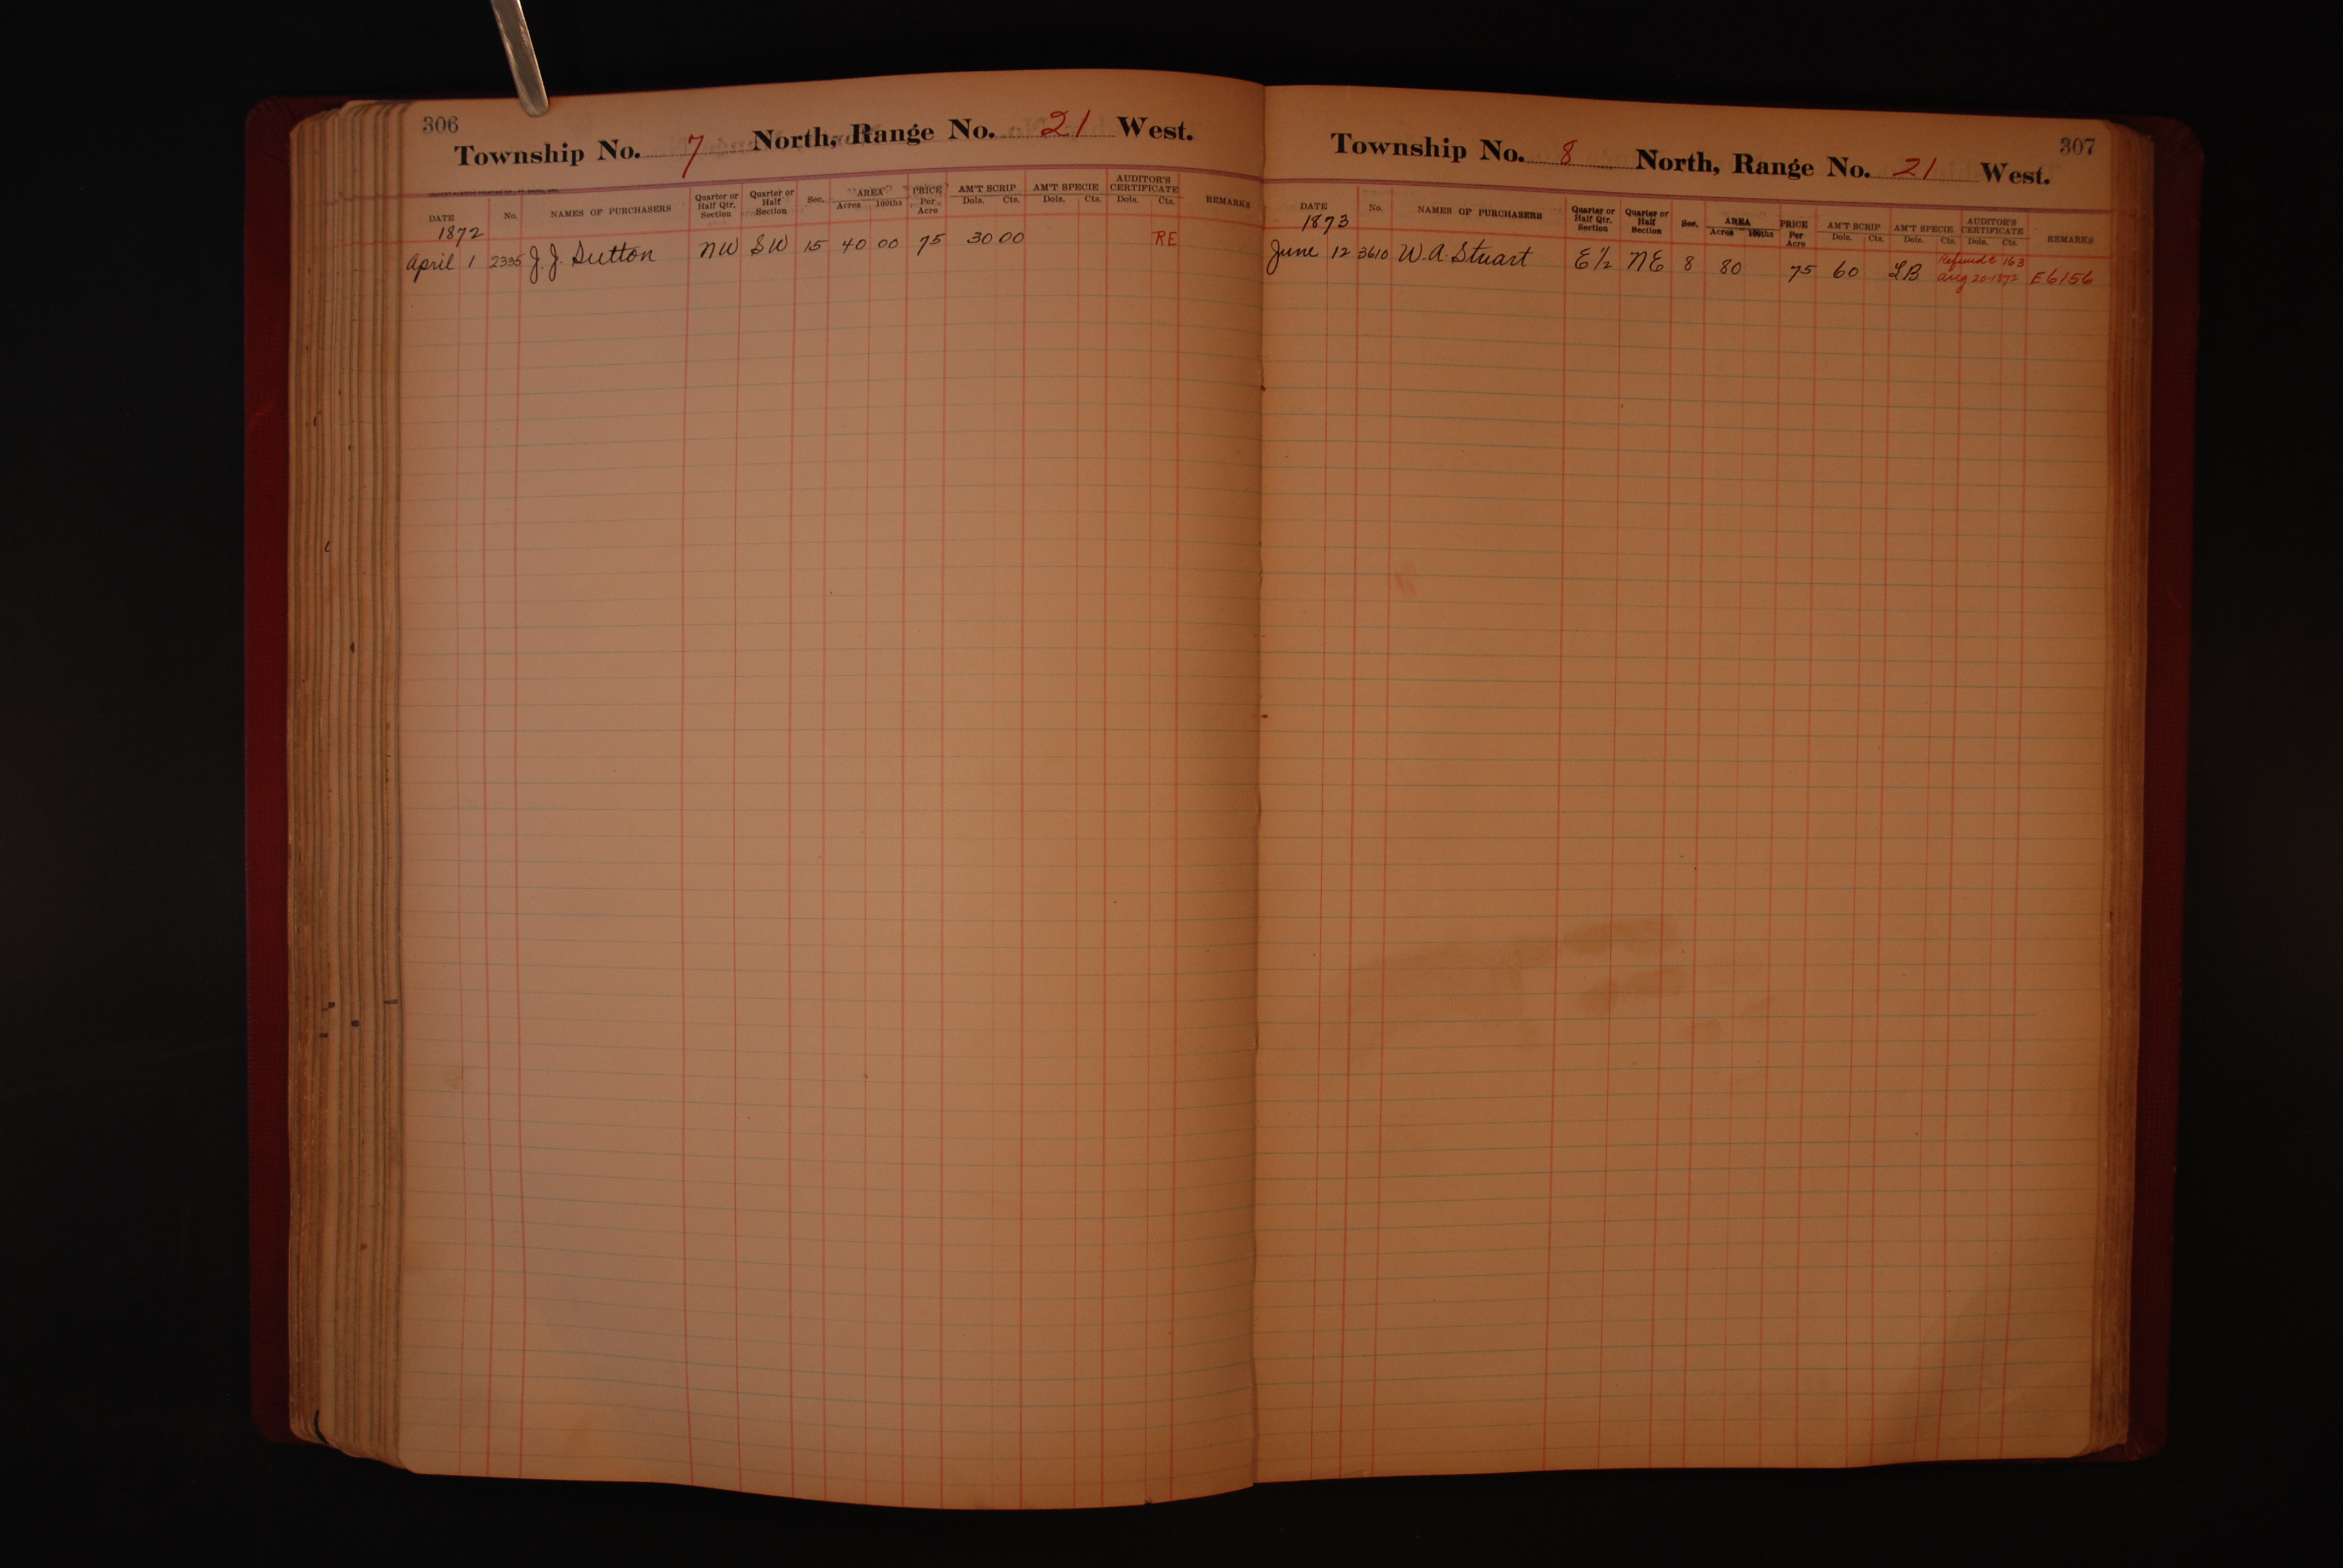 306
Township No. 7 North, Range No. 21 West.
DATE No. NAMES OF PURCHASERS Quarter or Half Qtr. Section Quarter or Half Section Sec. AREA Acres 100ths PRICE Per Acre AM'T SCRIP Dols. Cts. AM'T SPECIE Dols. Cts. AUDITOR'S CERTIFICATE Dols. Cts. REMARKS
1872
April 1 2335 J. J. Sutton NW SW 15 40 00 75 30 00 RE
307
Township No. 8 North, Range No. 21 West.
DATE No. NAMES OF PURCHASERS Quarter or Half Qtr. Section Quarter or Half Section Sec. AREA Acres 100ths PRICE Per Acre AM'T SCRIP Dols. Cts. AM'T SPECIE Dols. Cts. AUDITOR'S CERTIFICATE Dols. Cts. REMARKS
1873
June 12 3610 W. A. Stuart E 1/2 NE 8 80 75 60 LB Refund E 163
Aug 20-1872 E6156